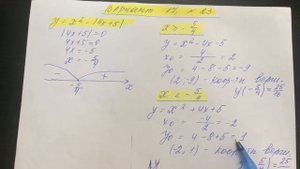 Вариант 12, № 23
y = x² - |4x+5|
|4x+5| = 0
4x+5 = 0
4x = -5
x = -5/4
- +
-5/4 x
x > -5/4
y = x² - 4x - 5
x₀ = 4/2 = 2
y₀ = 4 - 8 - 5 = -9
(2; -9) - коорд верш.
y(-5/4) = 25/16
x < -5/4
y = x² + 4x + 5
x₀ = -4/2 = -2
y₀ = 4 - 8 + 5 = 1
(-2; 1) - коорд верш.